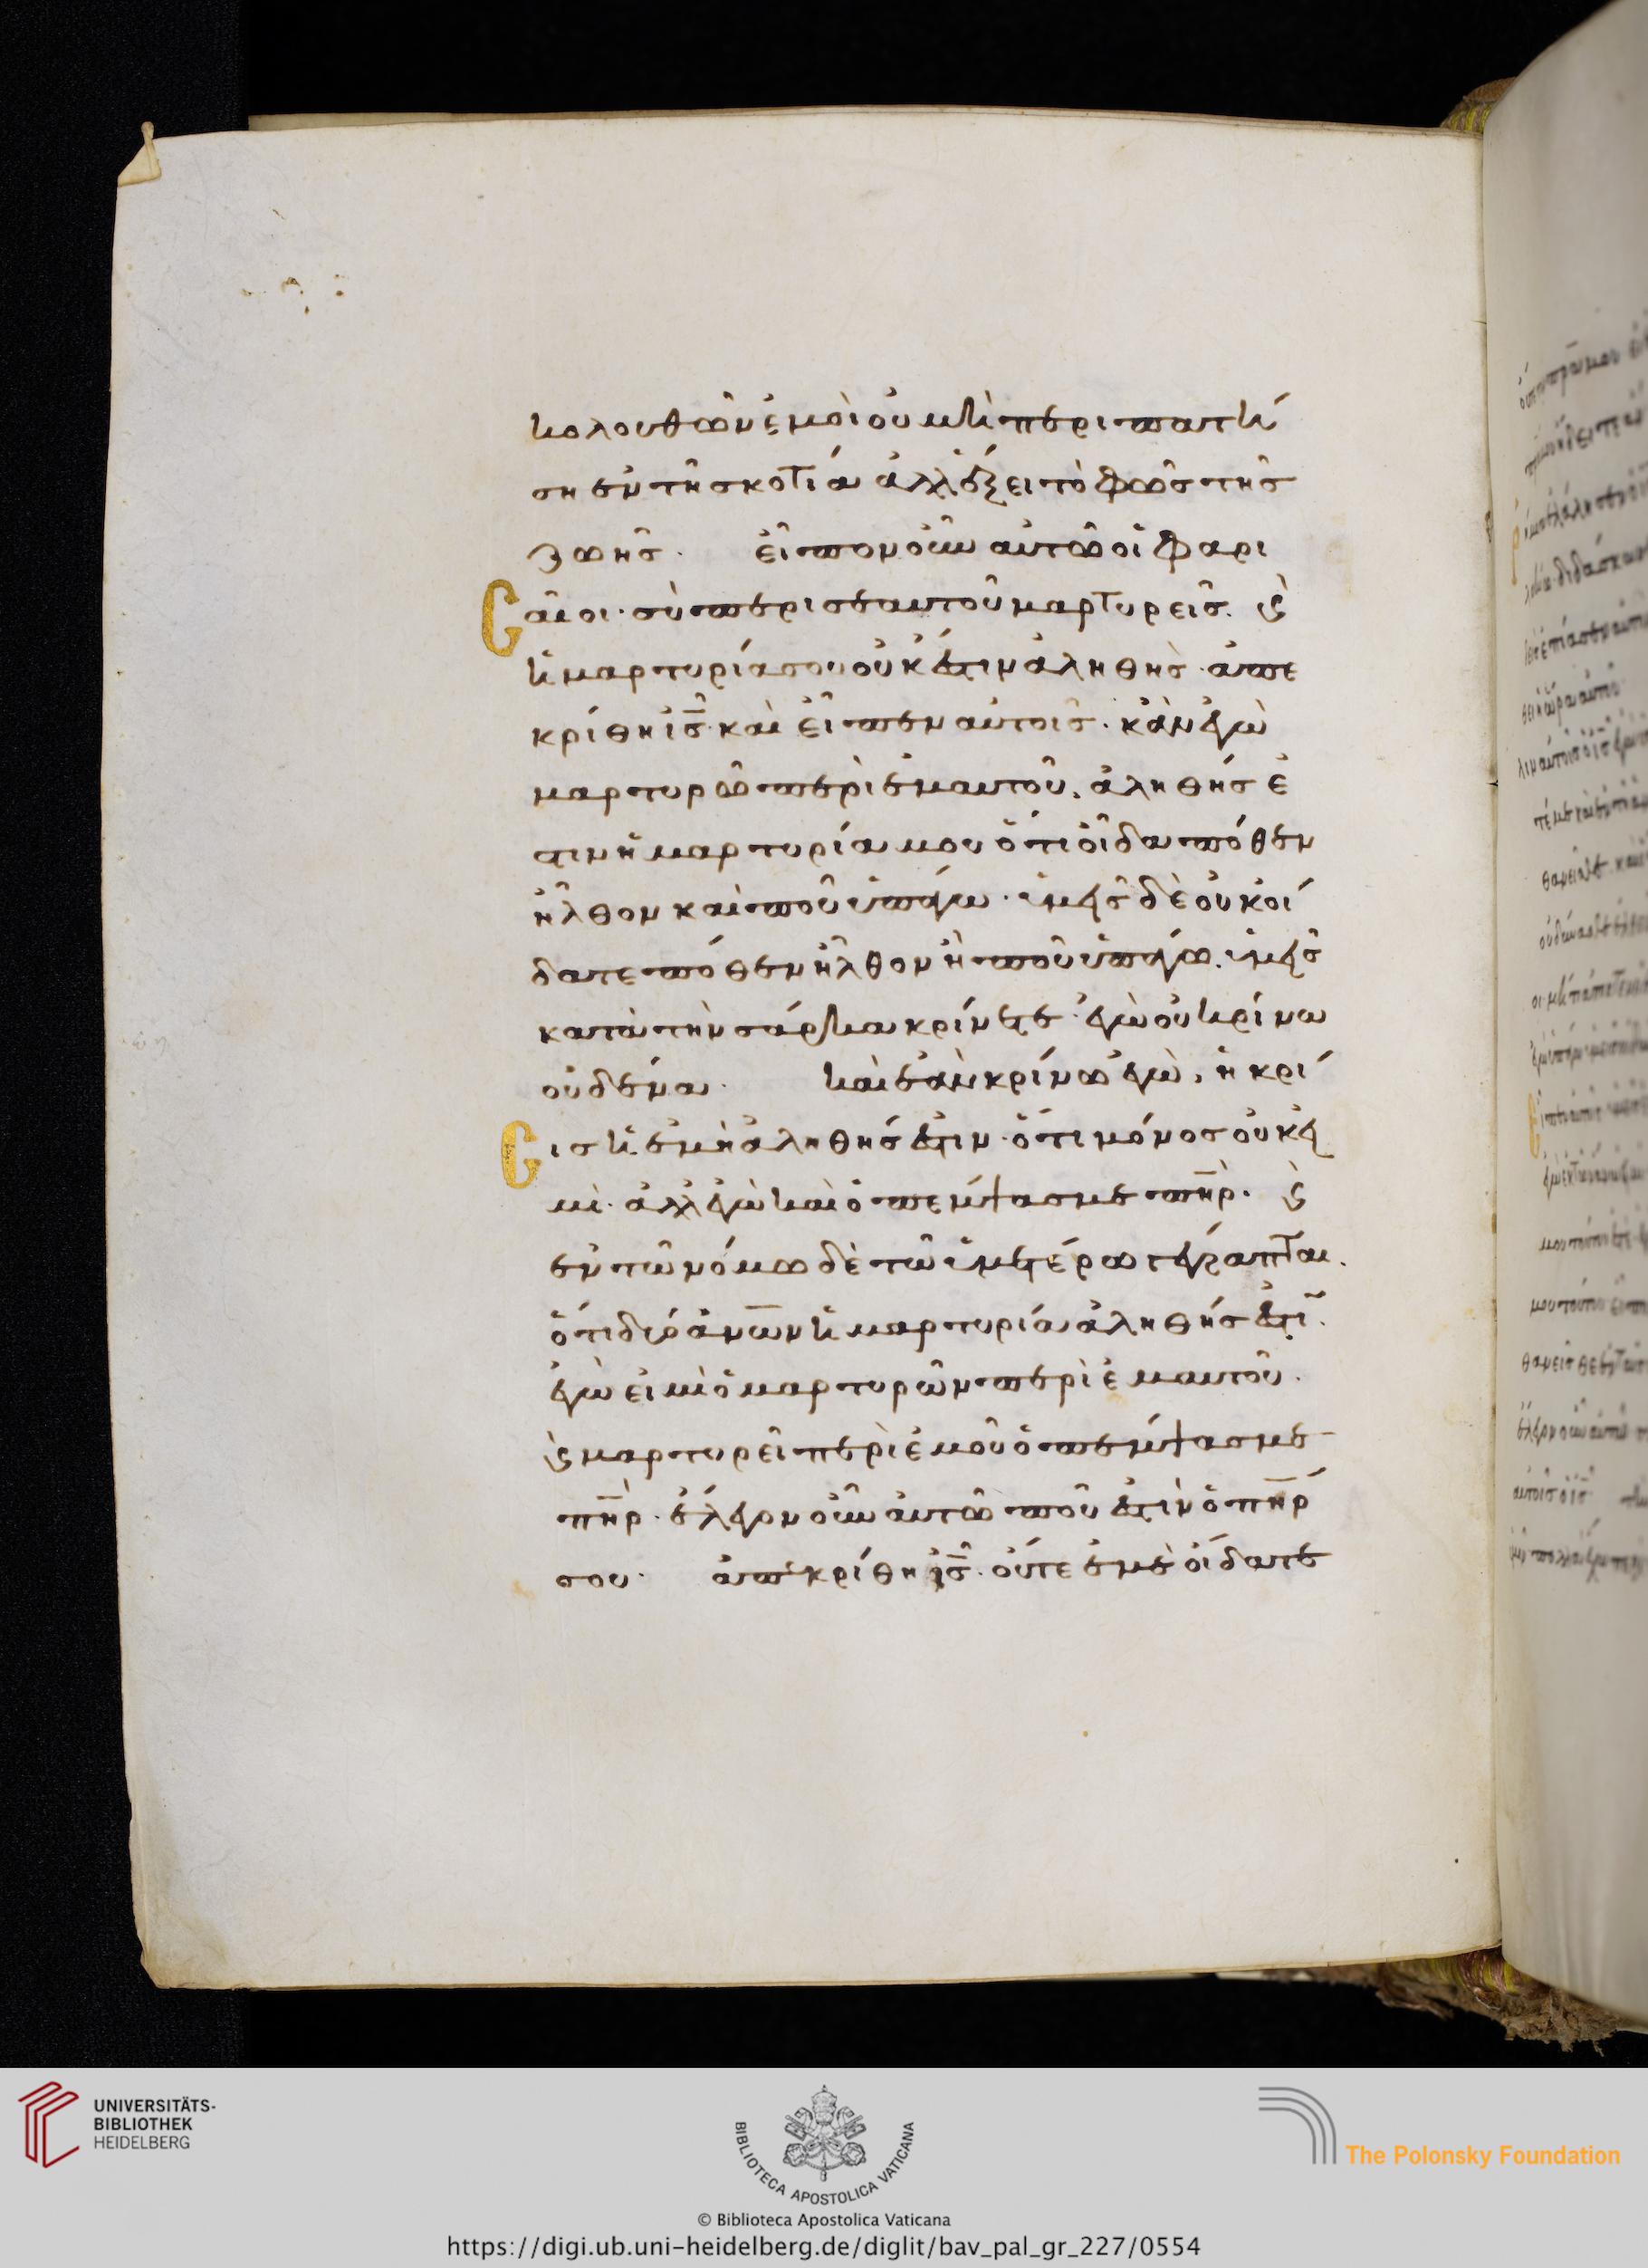 κολουθῶν ἐμοὶ οὐ μὴ περιπατή
ση ἐν τῆ σκοτία ἀλλ ἕξει τὸ φῶς τῆς
ζωῆς. εἶπον οὖν αὐτῶ οἱ φαρι
σαῖοι· σὺ περι σεαυτοῦ μαρτυρεῖς. ϗ
ἡ μαρτυρία σου οὐκ ἔστιν ἀληθὴς· ἀπε
κρίθη ἰς̅ καὶ εἶπεν αὐτοῖς· κἀν ἐγὼ
μαρτυρῶ περὶ ἐμαυτοῦ, ἀληθής ἐ
στιν ἡ μαρτυρία μου ὅτι οἶδα πόθεν
ἦλθον καὶ ποῦ ὑπάγω· ὑμεῖς δὲ οὐκ οἴ
δατε πόθεν ἦλθον ἢ ποῦ ὑπάγω. ὑμεῖς
κατὰ τὴν σάρκα κρίνετε· ἐγὼ οὐ κρίνω
οὐδένα. καὶ ἐὰν κρίνω ἐγὼ, ἡ κρί
σις ἡ ἐμὴ ἀληθής ἐστιν· ὅτι μόνος οὐκ εἰ
μὶ· ἀλλ ἐγὼ καὶ ὁ πέμψας με πη̅ρ. ϗ
ἐν τῶ νόμω δὲ τῶ ὑμετέρω γέγραπται.
ὅτι δύο ἀνω̅ν ἡ μαρτυρία ἀληθής ἐστι̅.
ἐγὼ εἰμὶ ὁ μαρτυρῶν περὶ ἐμαυτοῦ.
ϗ μαρτυρεῖ περὶ ἐμοῦ ὁ πέμψας με
πη̅ρ. ἔλεγον οὖν αὐτῶ ποῦ ἐστὶν ὁ πη̅ρ
σου· ἀπεκρίθη ἰς̅. οὔτε ἐμὲ οἴδατε
UNIVERSITÄTS-
BIBLIOTHEK
HEIDELBERG
BIBLIOTECA APOSTOLICA VATICANA
The Polonsky Foundation
© Biblioteca Apostolica Vaticana
https://digi.ub.uni-heidelberg.de/diglit/bav_pal_gr_227/0554